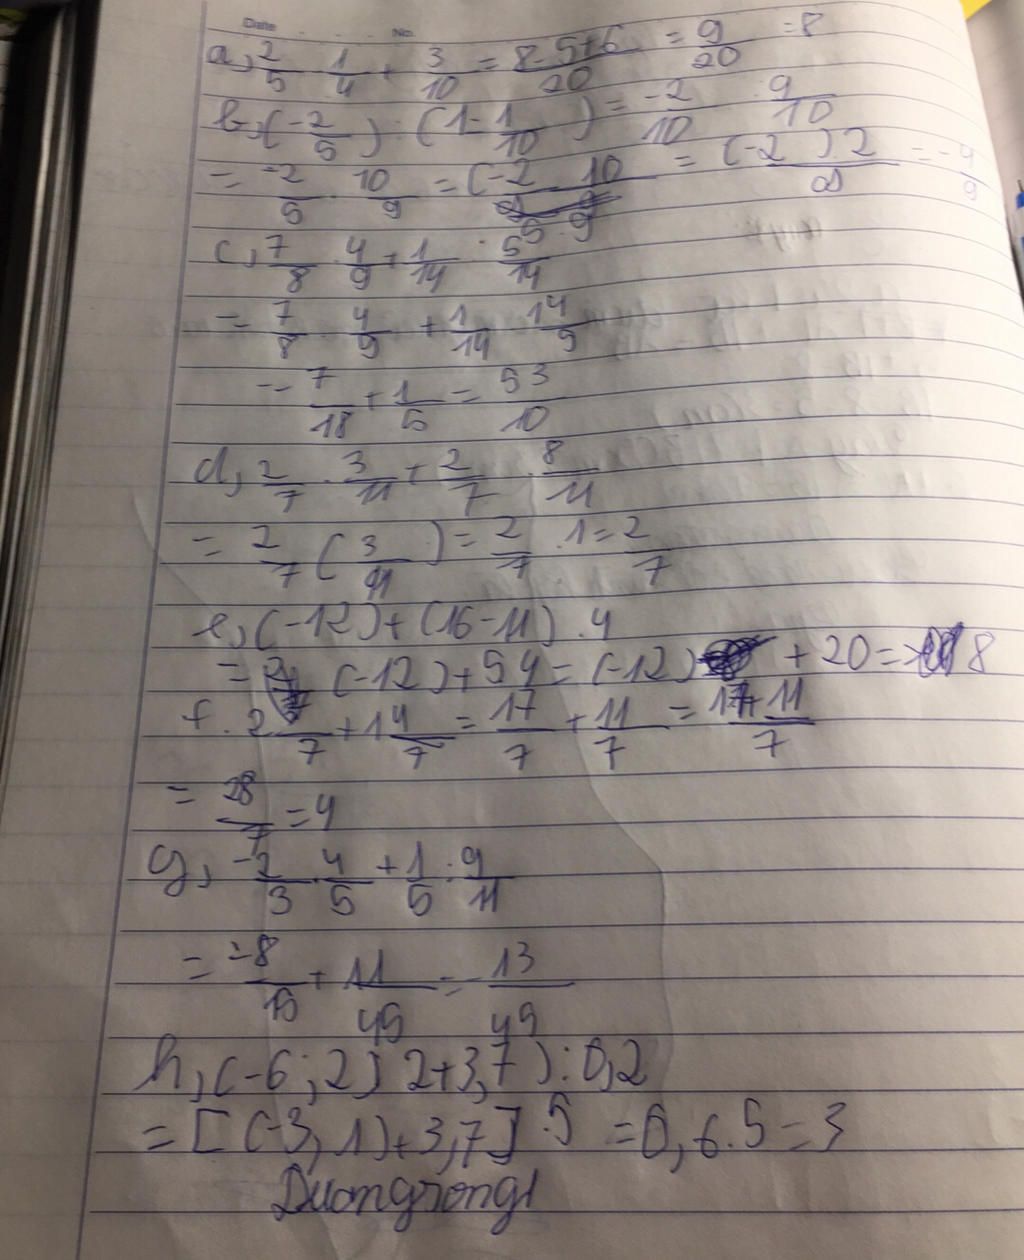 Date No.
a, 2/5 - 1/4 + 3/10 = 8-5+6/20 = 9/20 =8
b, (-2/5) : (1-1/10) = -2/10 . 9/10
= -2/5 . 10/9 = (-2 . 10/5.9 = (-2) 2/9 = -4/9
c, 7/8 . 4/9 + 1/14 : 5/14
= 7/8 . 4/9 + 1/14 . 14/5
= 7/18 + 1/5 = 53/10
d, 2/7 . 3/11 + 2/7 . 8/11
= 2/7 (3/11) = 2/7 .1 = 2/7
e, (-12)+(16-11) .4
= (-12)+5 4 = (-12) + 20 = 8
f. 2 /7 + 1 4/7 = 17/7 + 11/7 = 17+11/7
= 28/7 = 4
g, -2/3 . 4/5 + 1/5 : 9/11
= -8/15 + 11/45 = -13/45
h, (-6,2) 2+3,7) : 0,2
= [(-3,1)+3,7] .5 = 0,6.5 = 3